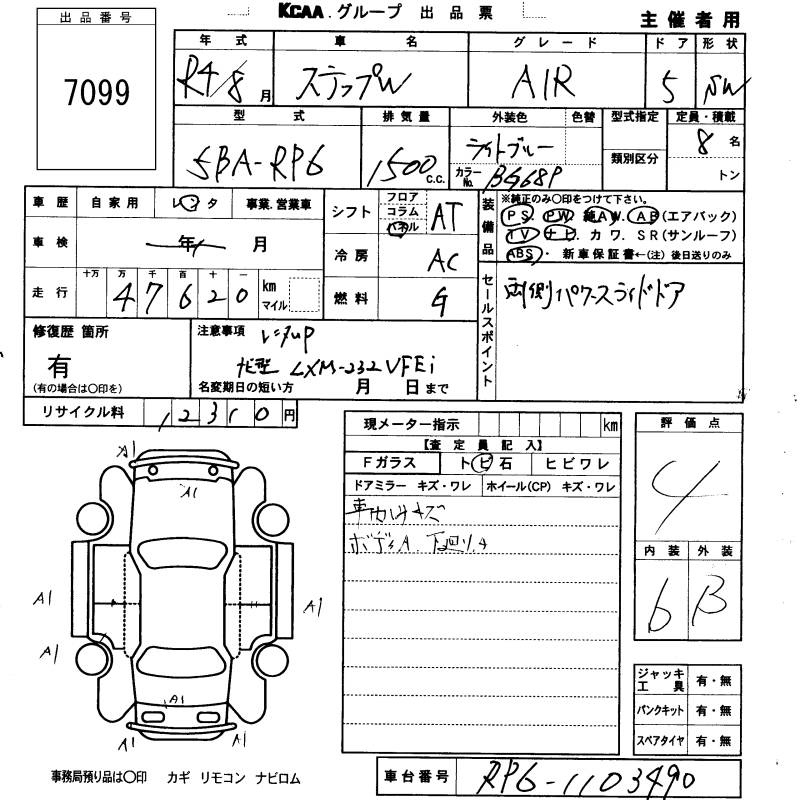 KCAA.グループ 出品票
主催者用
出品番号
7099
年式 車名 グレード ドア 形状
R4/8月 ステップW AIR 5 SW
型式 排気量 外装色 色替 型式指定 定員・積載
5BA-RP6 1500 c.c. ライトブルー 8名
カラーNo. BG68P 類別区分 トン
車歴 自家用 レンタ 事業.営業車
シフト フロア コラム パネル AT
装備品 ※純正のみ〇印をつけて下さい。
PS. PW. 純AW. AB(エアバック)
TV ナビ. カワ. SR(サンルーフ)
ABS・ 新車保証書←(注)後日送りのみ
車検 年 月
冷房 AC
走行 十万 万 千 百 十 一 km マイル
47620
燃料 G
セールスポイント 両側パワースライドドア
修復歴 箇所
有
(有の場合は〇印を)
注意事項 レンタup
ナビ型 LXM-232VFEi
名変期日の短い方 月 日まで
リサイクル料 12310円
現メーター指示 km
【査定員記入】
Fガラス トビ石 ヒビワレ
ドアミラー キズ・ワレ ホイール(CP) キズ・ワレ
車内ハゲキズ
ボディA. 下廻りサ
評価点
4
内装 外装
b B
A1
A1
A1
A1
A1
A1
A1
A1
ジャッキ工具 有・無
パンクキット 有・無
スペアタイヤ 有・無
事務局預り品は〇印 カギ リモコン ナビロム
車台番号 RP6-1103490